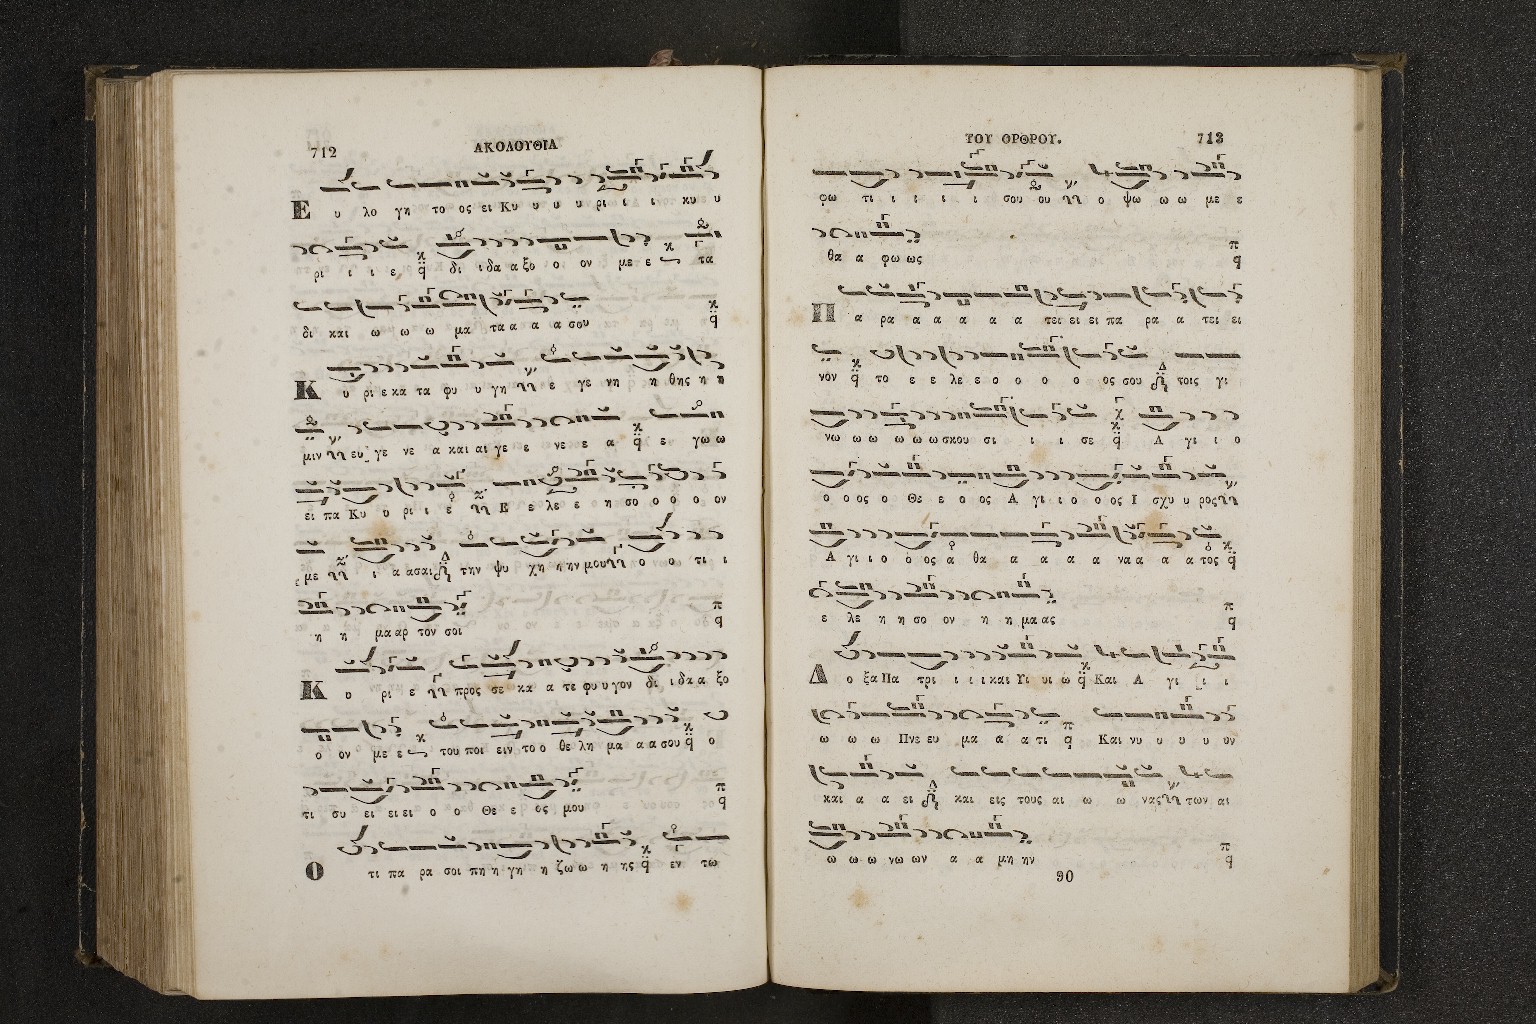 712
ΑΚΟΛΟΥΘΙΑ
Ε υ λο γη το ος ει Κυ υ υ υ ρι ι ι κυ υ
ρι ι ι ε δι ι δα α ξο ο ον με ε τα
δι και ω ω ω μα τα α α α σου
Κ υ ρι ε κα τα φυ υ γη ε γε νη η θης η η
μιν ευ γε νε α και αι γε ε νε ε α ε γω ω
ει πα Κυ υ ρι ι ε Ε ε λε ε η σο ο ο ο ον
με ι α ασαι την ψυ χη η ην μου ο ο τι ι
η η μα αρ τον σοι
Κ υ ρι ε προς σε κα α τε φυ υ γον δι ι δα α ξο
ο ον με ε του ποι ειν το ο θε λη μα α α σου ο
τι συ ει ει ει ο ο Θε ε ος μου
Ο τι πα ρα σοι πη η γη η ζω ω η ης εν τω
ΤΟΥ ΟΡΘΡΟΥ.
713
φω τι ι ι ι ι σου ου ο ψω ω ω με ε
θα α φω ως
Π α ρα α α α α α τει ει ει πα ρα α τει ει
νον το ε ε λε ε ο ο ο ο ος σου τοις γι
νω ω ω ω ω ω σκου σι ι ι σε Α γι ι ο
ο ο ος ο Θε ε ο ος Α γι ι ο ο ος Ι σχυ υ ρος
Α γι ι ο ο ος α θα α α α α να α α α τος
ε λε η η σο ον η η μα ας
Δ ο ξα Πα τρι ι ι ι και Υι υι ω Και Α γι ι ι
ω ω ω Πνε ευ μα α α τι Και νυ υ υ υ υν
και α α ει και εις τους αι ω ω νας των αι
ω ω ω νω ων α α μη ην
90